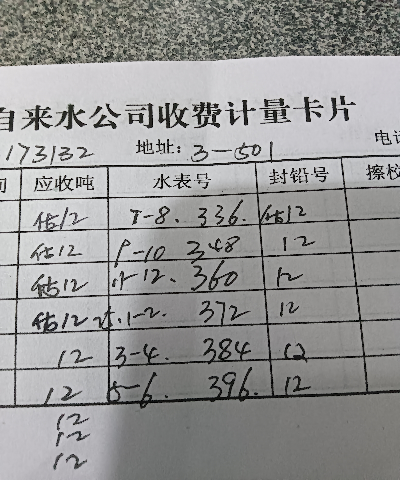 自来水公司收费计量卡片
173132 地址: 3-501 电
应收吨 水表号 封铅号 擦
估12 7-8. 336. 估12
估12 9-10 348 12
估12 11-12. 360 12
估12 25.1-2. 372 12
12 3-4. 384 12
12 5-6. 396. 12
12
12
12